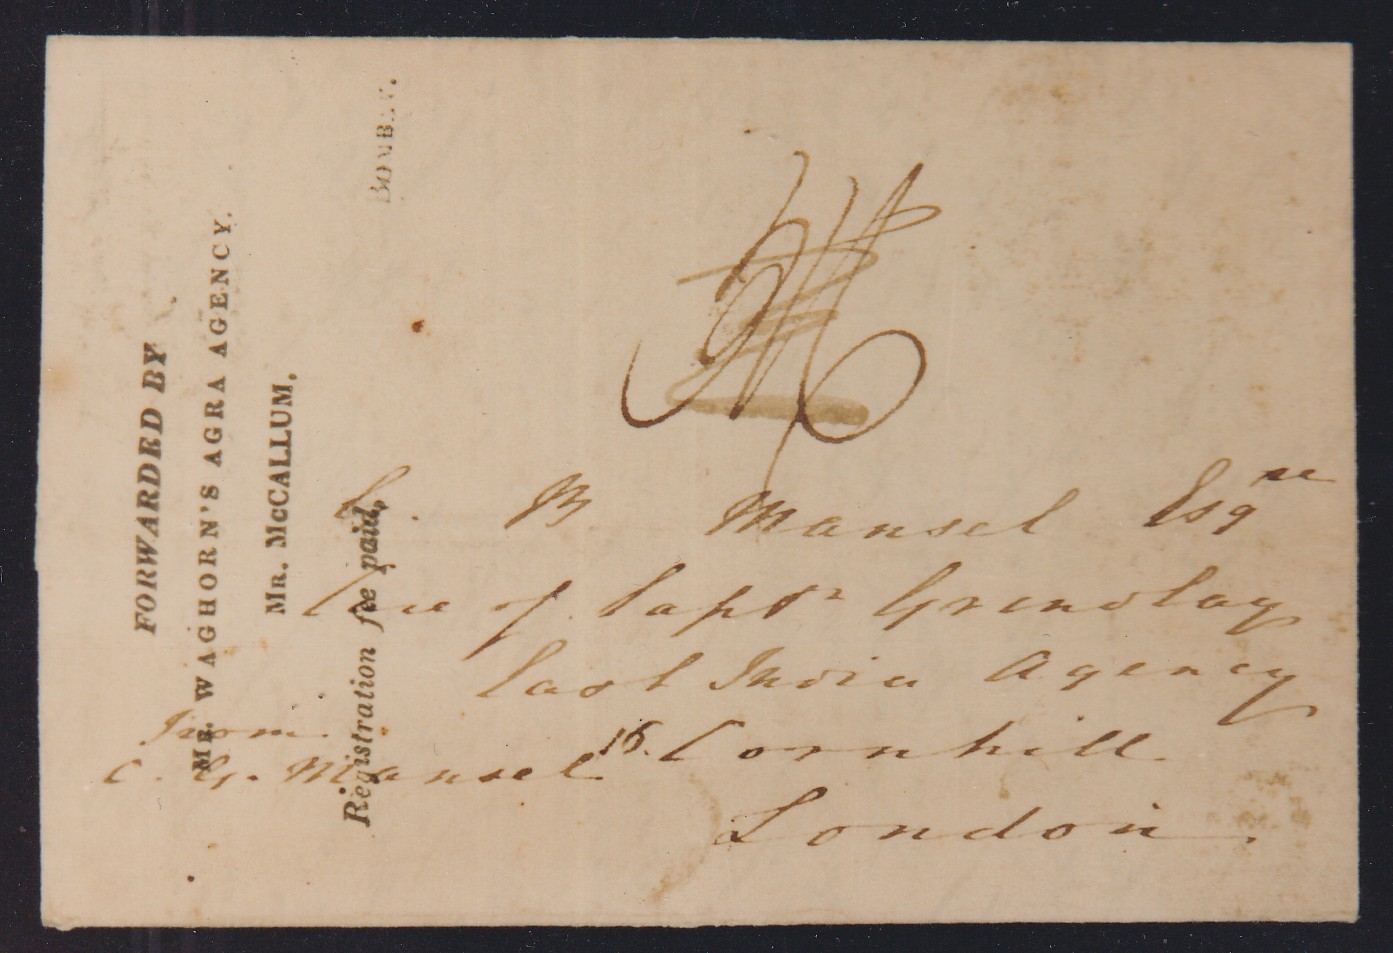 FORWARDED BY
MR. WAGHORN'S AGRA AGENCY.
MR. McCALLUM,
Registration fee paid,
BOMBAY.
C. B Mansel Esqre
Care of Captn Grendlay
East India Agency
16. Cornhill
London.
From
C. G. Mansel